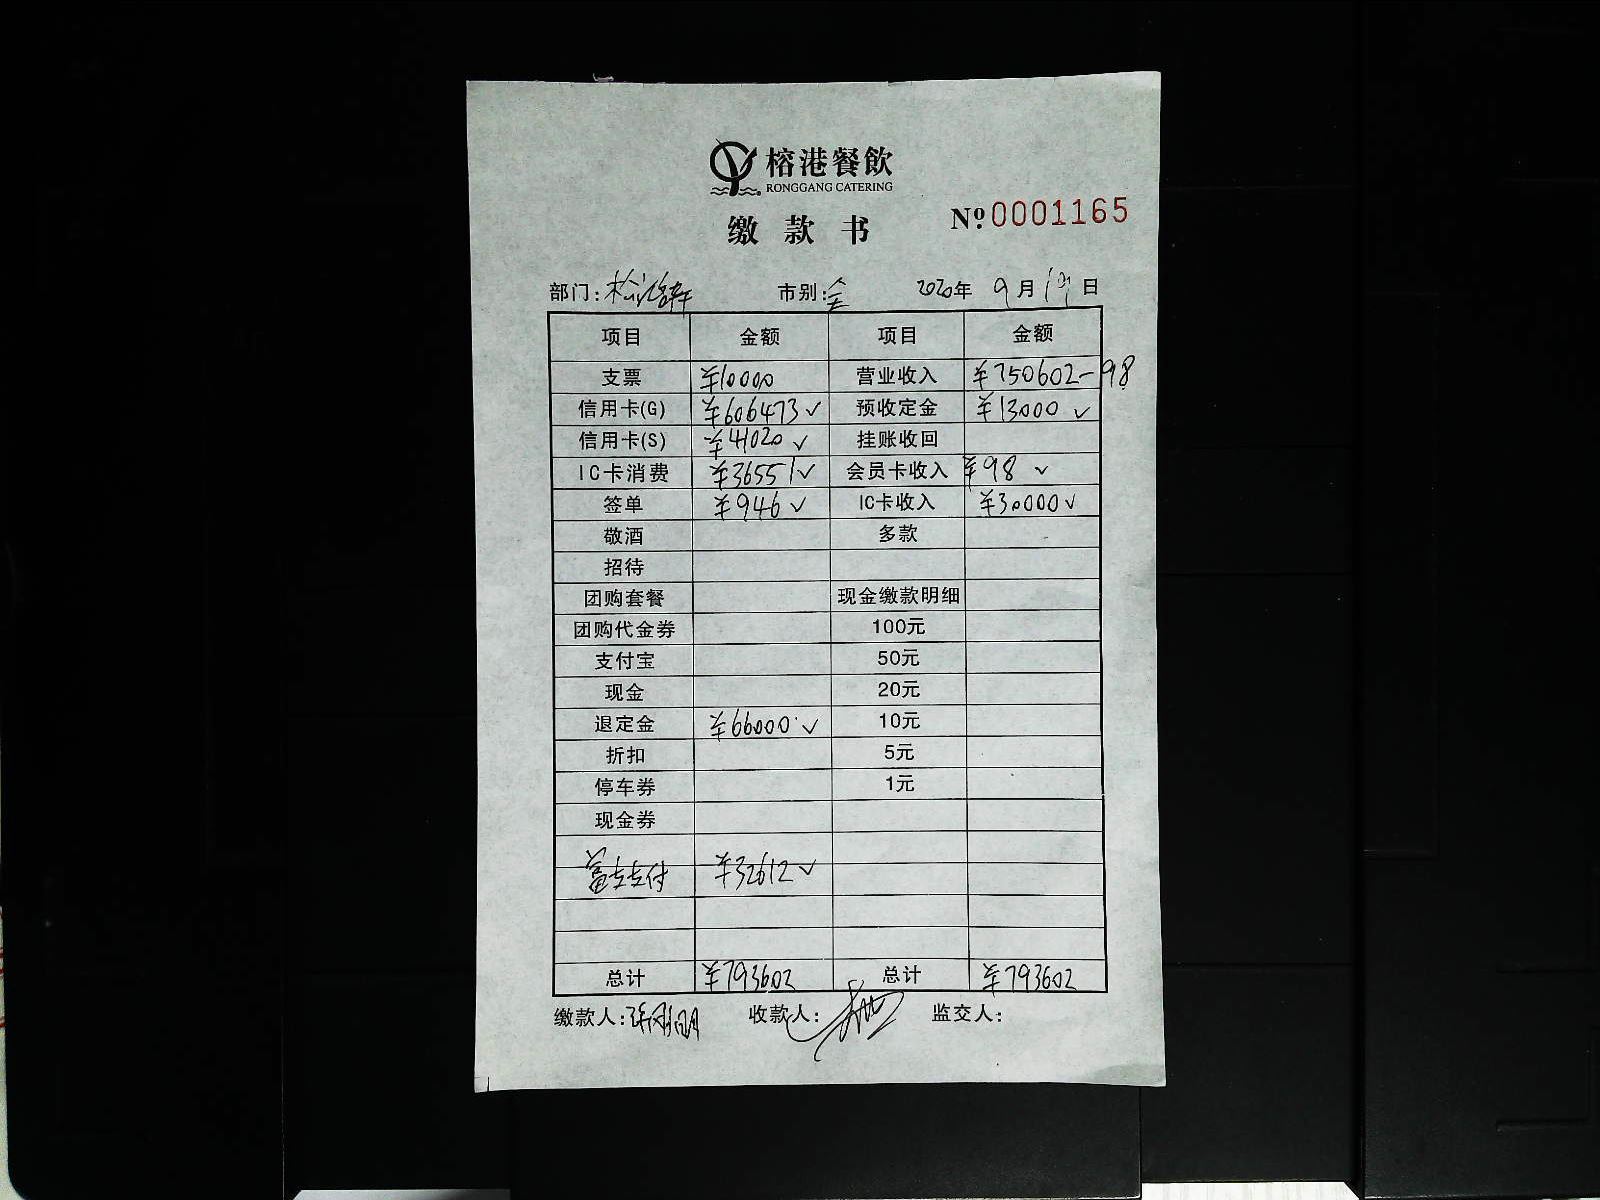 榕港餐飲
RONGGANG CATERING
缴款书 Nº:0001165
部门: 市别:全 2020年 9月19日
项目 金额 项目 金额
支票 ¥10000 营业收入 ¥750602-98
信用卡(G) ¥606473✓ 预收定金 ¥13000 ✓
信用卡(S) ¥41020 ✓ 挂账收回
IC卡消费 ¥36551✓ 会员卡收入 ¥98 ✓
签单 ¥946✓ IC卡收入 ¥30000✓
敬酒 多款
招待
团购套餐 现金缴款明细
团购代金券 100元
支付宝 50元
现金 20元
退定金 ¥66000.✓ 10元
折扣 5元
停车券 1元
现金券
¥32612✓
总计 ¥793602 总计 ¥793602
缴款人: 收款人: 监交人: